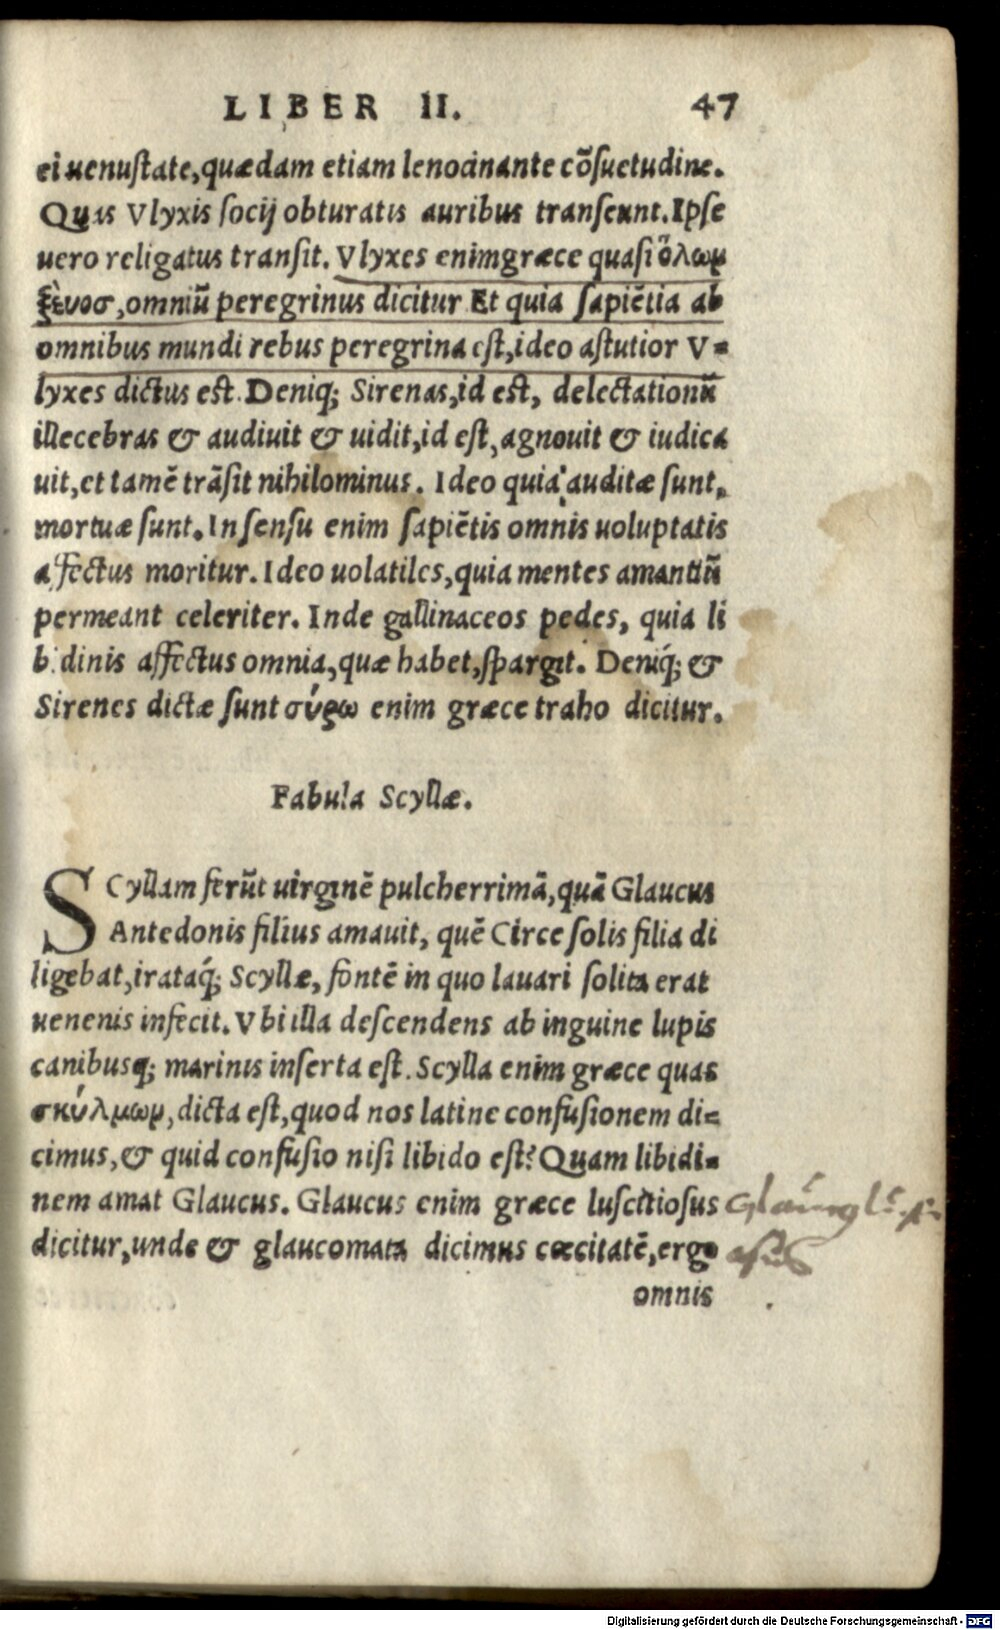 LIBER II. 47
ei uenuſtate, quædam etiam lenocinante cõſuetudine.
Quas Vlyxis ſocij obturatis auribus tranſeunt. Ipſe
uero religatus tranſit. Vlyxes enim græce quaſi ὅλωμ
ξὲνοσ, omniũ peregrinus dicitur Et quia ſapiẽtia ab
omnibus mundi rebus peregrina eſt, ideo aſtutior V=
lyxes dictus eſt. Deniq; Sirenas, id eſt, delectationũ
illecebras & audiuit & uidit, id eſt, agnouit & iudica
uit, et tamẽ trãſit nihilominus. Ideo quia auditæ ſunt,
mortuæ ſunt. In ſenſu enim ſapiẽtis omnis uoluptatis
affectus moritur. Ideo uolatiles, quia mentes amantiũ
permeant celeriter. Inde gallinaceos pedes, quia li
bidinis affectus omnia, quæ habet, ſpargit. Deniq́; &
Sirenes dictæ ſunt σύρω enim græce traho dicitur.
Fabula Scyllæ.
SCyllam ferũt uirginẽ pulcherrimã, quã Glaucus
Antedonis filius amauit, quẽ Circe ſolis filia di
ligebat, irataq́; Scyllæ, fontẽ in quo lauari ſolita erat
uenenis infecit. Vbi illa deſcendens ab inguine lupis
canibusq; marinis inſerta eſt. Scylla enim græce quas
σκύλμωμ, dicta eſt, quod nos latine confuſionem di=
cimus, & quid confuſio niſi libido eſt? Quam libidi=
nem amat Glaucus. Glaucus enim græce luſcitioſus
dicitur, unde & glaucomata dicimus cæcitatẽ, ergo
omnis
Digitalisierung gefördert durch die Deutsche Forschungsgemeinschaft - DFG